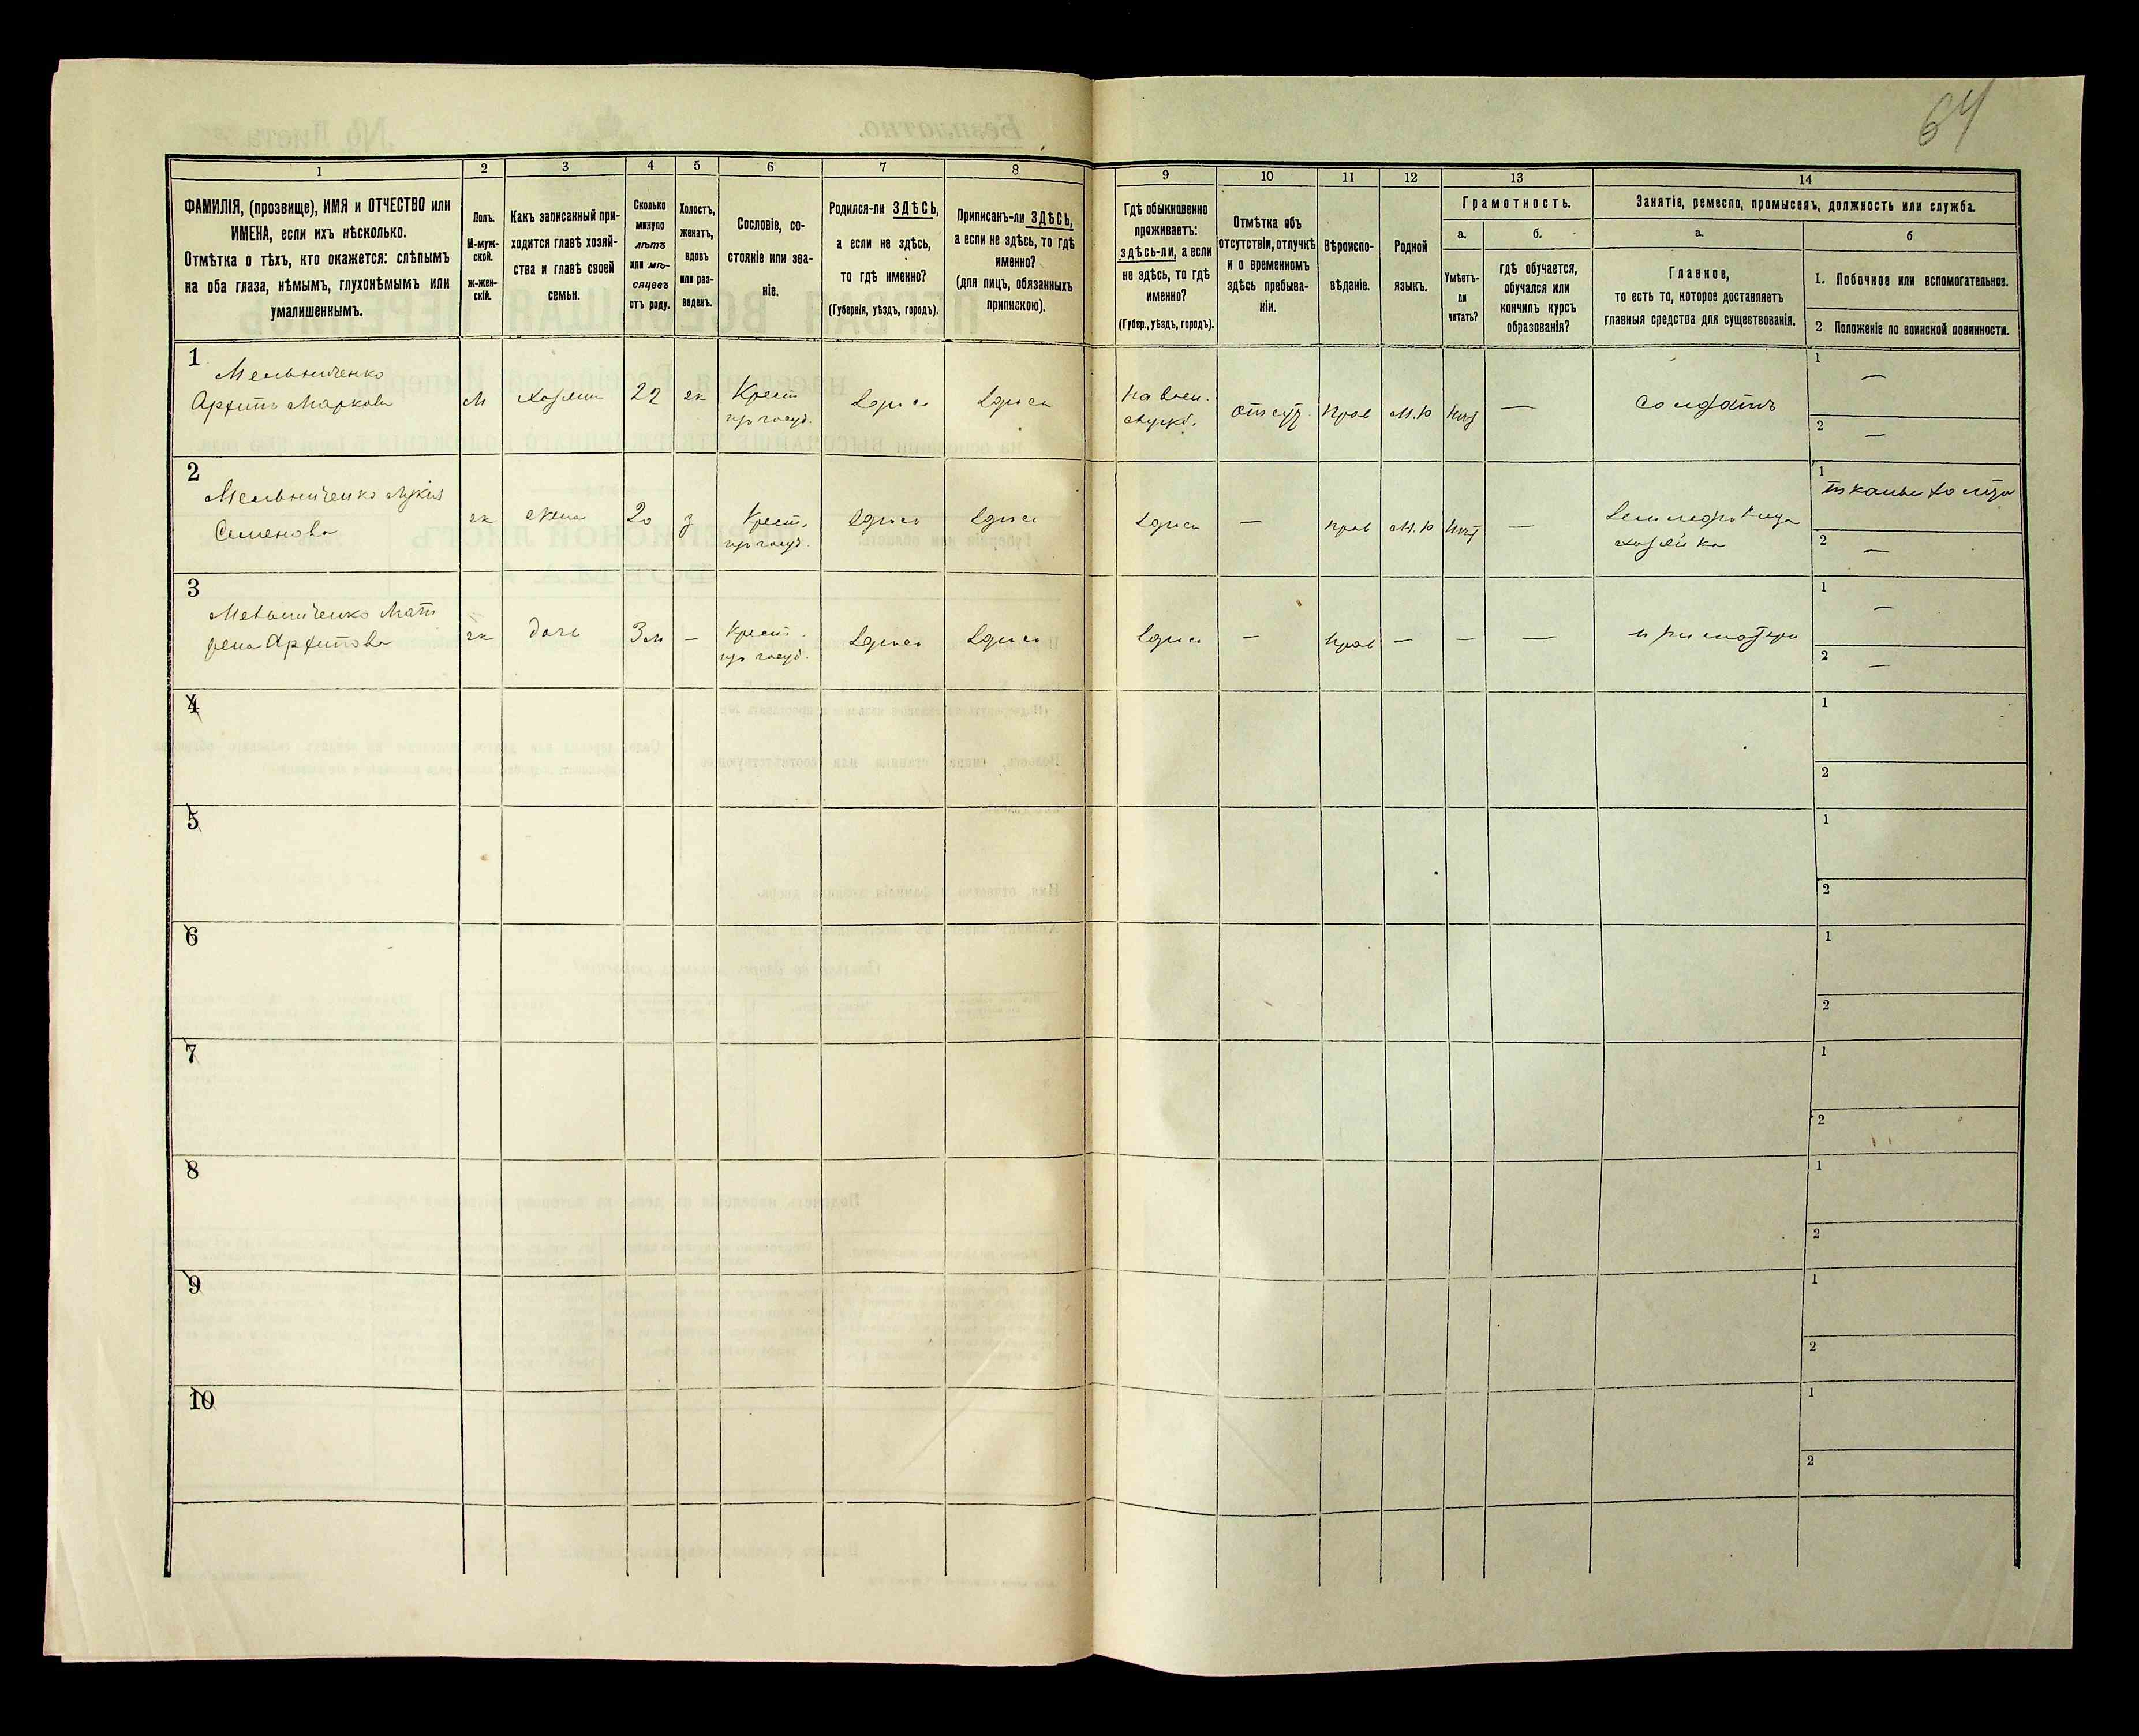 64
1 2 3 4 5 6 7 8 9 10 11 12 13 14
ФАМИЛІЯ, (прозвище), ИМЯ и ОТЧЕСТВО или
ИМЕНА, если ихъ нѣсколько.
Отмѣтка о тѣхъ, кто окажется: слѣпымъ
на оба глаза, нѣмымъ, глухонѣмымъ или
умалишеннымъ.
Полъ.
М-муж-
ской.
ж-жен-
скій.
Какъ записанный при-
ходится главѣ хозяй-
ства и главѣ своей
семьи.
Сколько
минуло
лѣтъ
или мѣ-
сяцевъ
отъ роду.
Холостъ,
женатъ,
вдовъ
или раз-
веденъ.
Сословіе, со-
стояніе или зва-
ніе.
Родился-ли ЗДѢСЬ,
а если не здѣсь,
то гдѣ именно?
(Губернія, уѣздъ, городъ).
Приписанъ-ли ЗДѢСЬ,
а если не здѣсь, то гдѣ
именно?
(для лицъ, обязанныхъ
припискою).
Гдѣ обыкновенно
проживаетъ:
здѣсь-ли, а если
не здѣсь, то гдѣ
именно?
(Губер., уѣздъ, городъ).
Отмѣтка объ
отсутствіи, отлучкѣ
и о временномъ
здѣсь пребыва-
ніи.
Вѣроиспо-
вѣданіе.
Родной
языкъ.
Грамотность.
а.
Умѣетъ-
ли
читать?
б.
гдѣ обучается,
обучался или
кончилъ курсъ
образованія?
Занятіе, ремесло, промыселъ, должность или служба.
а.
Главное,
то есть то, которое доставляетъ
главныя средства для существованія.
б
1. Побочное или вспомогательное.
2 Положеніе по воинской повинности.
1
Мельниченко
Архипъ Маркова
М
хозяин
22
ж
Крест
из госуд.
Здесь
Здесь
На воен.
служб.
отсут.
прав
М.Р
нет
—
солдатъ
1 —
2 —
2
Мельниченко
Семенова
ж
жена
20
з
Крест.
из госуд.
Здесь
Здесь
Здесь
—
прав
М.Р
нет
—
хозяйка
1
2 —
3
Мельниченко Мат
рена Архипова
ж
дочь
3 м
—
Крест.
из госуд.
Здесь
Здесь
Здесь
—
прав
—
—
—
при матери
1 —
2 —
4
1
2
5
1
2
6
1
2
7
1
2
8
1
2
9
1
2
10
1
2